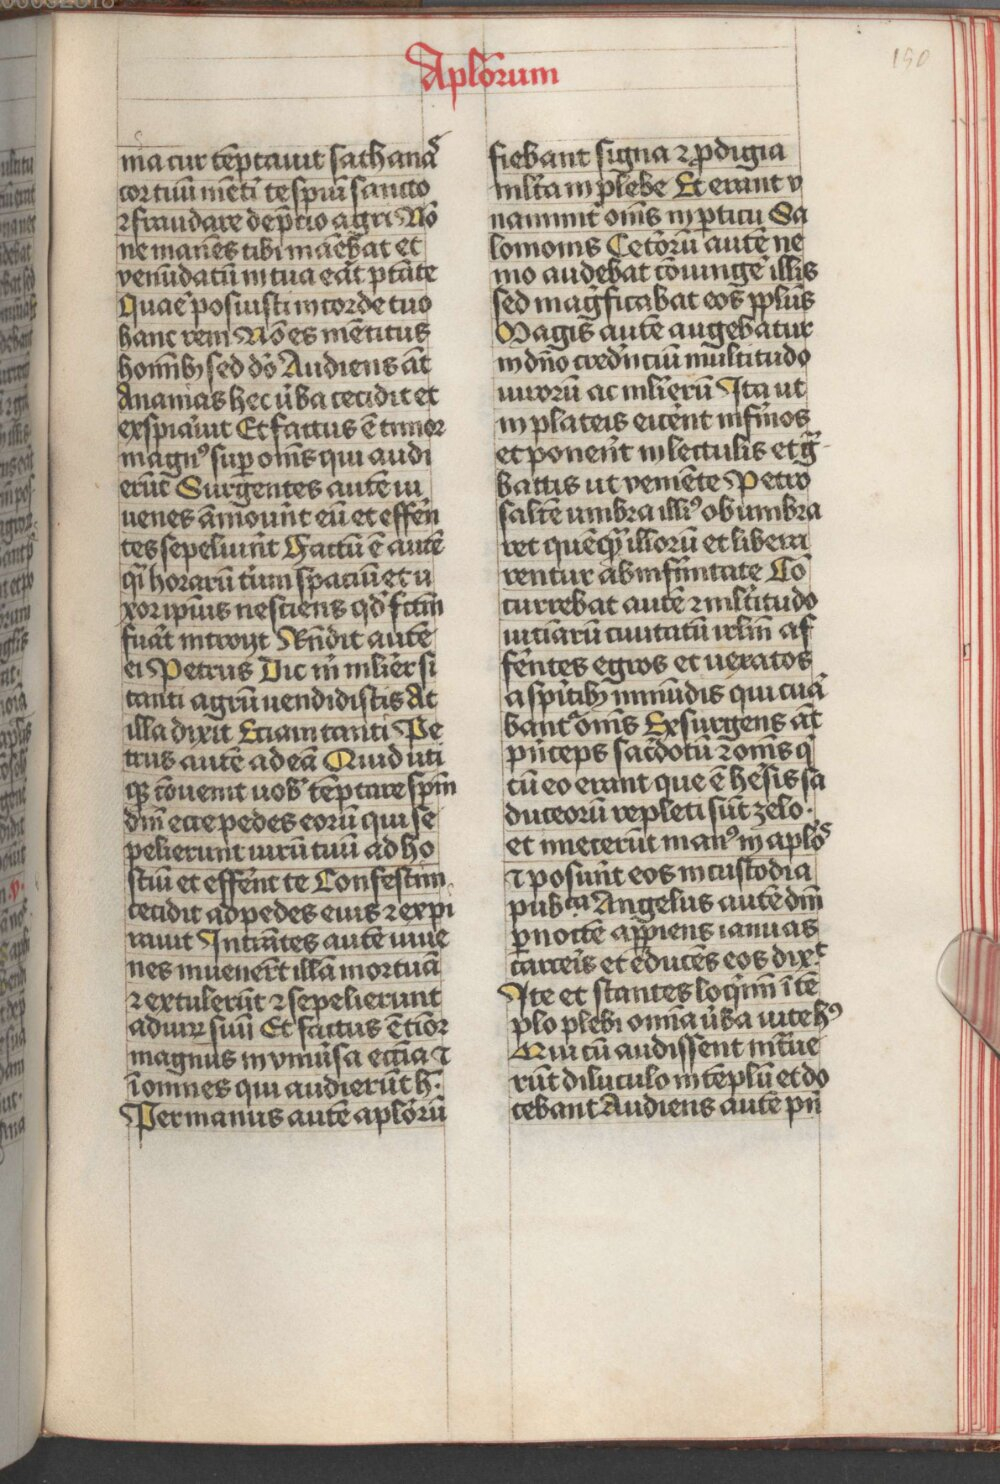 Aplõrum
190
ma cur tẽptauit sathanaˢ
cor tuũ mẽtiͥ te spũi sancto
⁊ fraudare de p̃cio agri Nõ
ne manẽs tibi manẽbat et
venũdatũ in tua eãt ptãte
Quaẽ posuisti in corde tuo
hanc rem Nõ es mẽtitus
homĩbꝫ sed dõ Audiens añt
Ananias hec ũba cecidit et
exspiãuit Et factus ẽ timor
magnꝰ suꝑ om̃s qui audi
erũt Surgentes autẽ iu
uenes ãmouñt eũ et effeñ
tes sepeliuñt Factũ ẽ autẽ
qͣ horarũ tiũm spaciũ et u
xor ipiũs nesciens qd̃ fctm̃
fuãt introyt Rñdit autẽ
ei Petrus Dic m̃ mliẽr si
tanti agrũ uendidistis At
illa dixit Etiam tanti Pe
trus autẽ ad eã Quid uti
qꝫ cõuenit uobˢ tẽptare spm̃
dñi ecce pedes eorũ qui se
pelierunt uirũ tuũ ad ho
stiũ et effẽnt te Confestim
cecidit ad pedes eius ⁊ expi
rauit Intrãtes autẽ iuue
nes inuenert̃ illã mortuã
⁊ extulerũt ⁊ sepelierunt
ad uirꝝ suũ Et factus ẽ tiõr
magnus in vniũsa eccĩa ⁊
ĩ omnes qui audierũt h̃·
Per manus autẽ aplõrũ
fiebant signa ⁊ ꝓdigia
mlt̃a in plebe Et erant v
nanimit̃ om̃s in ꝑticu Sa
lomonis Cetorũ autẽ ne
mo audebat cõiunge᷒ illis
sed magf̃icabat eos ppl̃us
Magis autẽ augebatur
in dño cred̃nciũ multitudo
uirorũ ac mliẽrũ Ita ut
in plateis eicẽnt infm̃os
et poneñt in lectulis et g̃
battis ut veniẽte Petro
saltẽ umbra illiꝰ obumbra
ret quẽqꝫ illorũ et libera
rentur ab infm̃itate Cõ
currebat autẽ ⁊ mlt̃itudo
uicinarũ ciuitatũ irlm̃ af
fẽntes egros et uexatos
a spĩtibꝫ inmũdis qui cuã
bant᷑ om̃s Exsurgens añt
pñceps sac̃dotũ ⁊ om̃s qͥ
cũ eo erant que ẽ he᷒sis sa
duceorũ repleti sũt zelo·
et iniecerũt manꝰ in aplõˢ
⁊ posuñt eos in custodia
pubͨᵃ Angelus autẽ dñi
ꝑ noctẽ aꝑiens ianuas
carce᷒is et educẽs eos dixͭ
Ite et stantes loqͥmĩ ĩ tẽ
plo plebi omĩa ũba uite hꝰ
Qui cũ audissent int̃ue
rũt diluculo in tẽplũ et do
cebant Audiens autẽ pñ